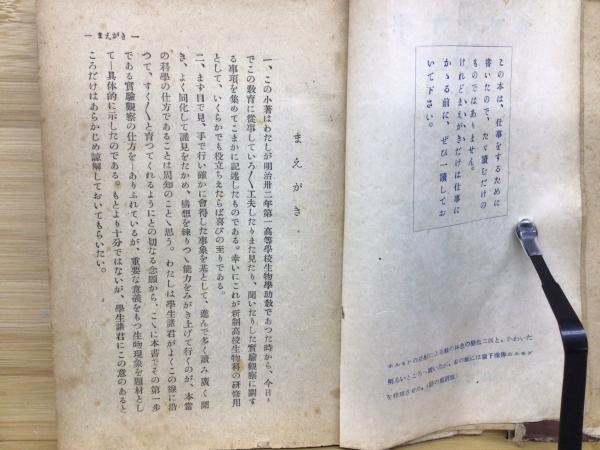 この本は、仕事をするために
書いたので、たゞ讀むだけの
ものではありません。
けれどまえがきだけは仕事に
かゝる前に、ぜひ一讀してお
いて下さい。
ホルモンの注射による
明るいところへ置いたが、右の
を作用させた。
— まえがき —
まえがき
一、この小著はわたしが明治卅二年第一高等學校生物學助敎であつた時から、今日ま
でこの敎育に從事していろ〱工夫したりまた見たり、聞いたりした實驗觀察に關す
る事項を集めてこまかに記述したものである。幸いにこれが新制高校生物科の研修用
として、いくらかでも役立ちえたらば喜びの至りである。
二、まず目で見、手で行い確かに會得した事象を基として、進んで多く讀み廣く聞
き、よく同化して識見をたかめ、構想を練りつゝ能力をみがき上げて行くのが、本當
の科學の仕方であることは周知のことゝ思う。わたしは學生諸君がよくこの線に沿
つて、すく〱と育つてくれるようにとの切なる念願から、こゝに本書でその第一步
である實驗觀察の仕方を—ありふれているが、重要な意義をもつ生物現象を題材とし
て—具体的に示したのである。もとより十分ではないが、學生諸君にこの意のあると
ころだけはあらかじめ諒解しておいてもらいたい。